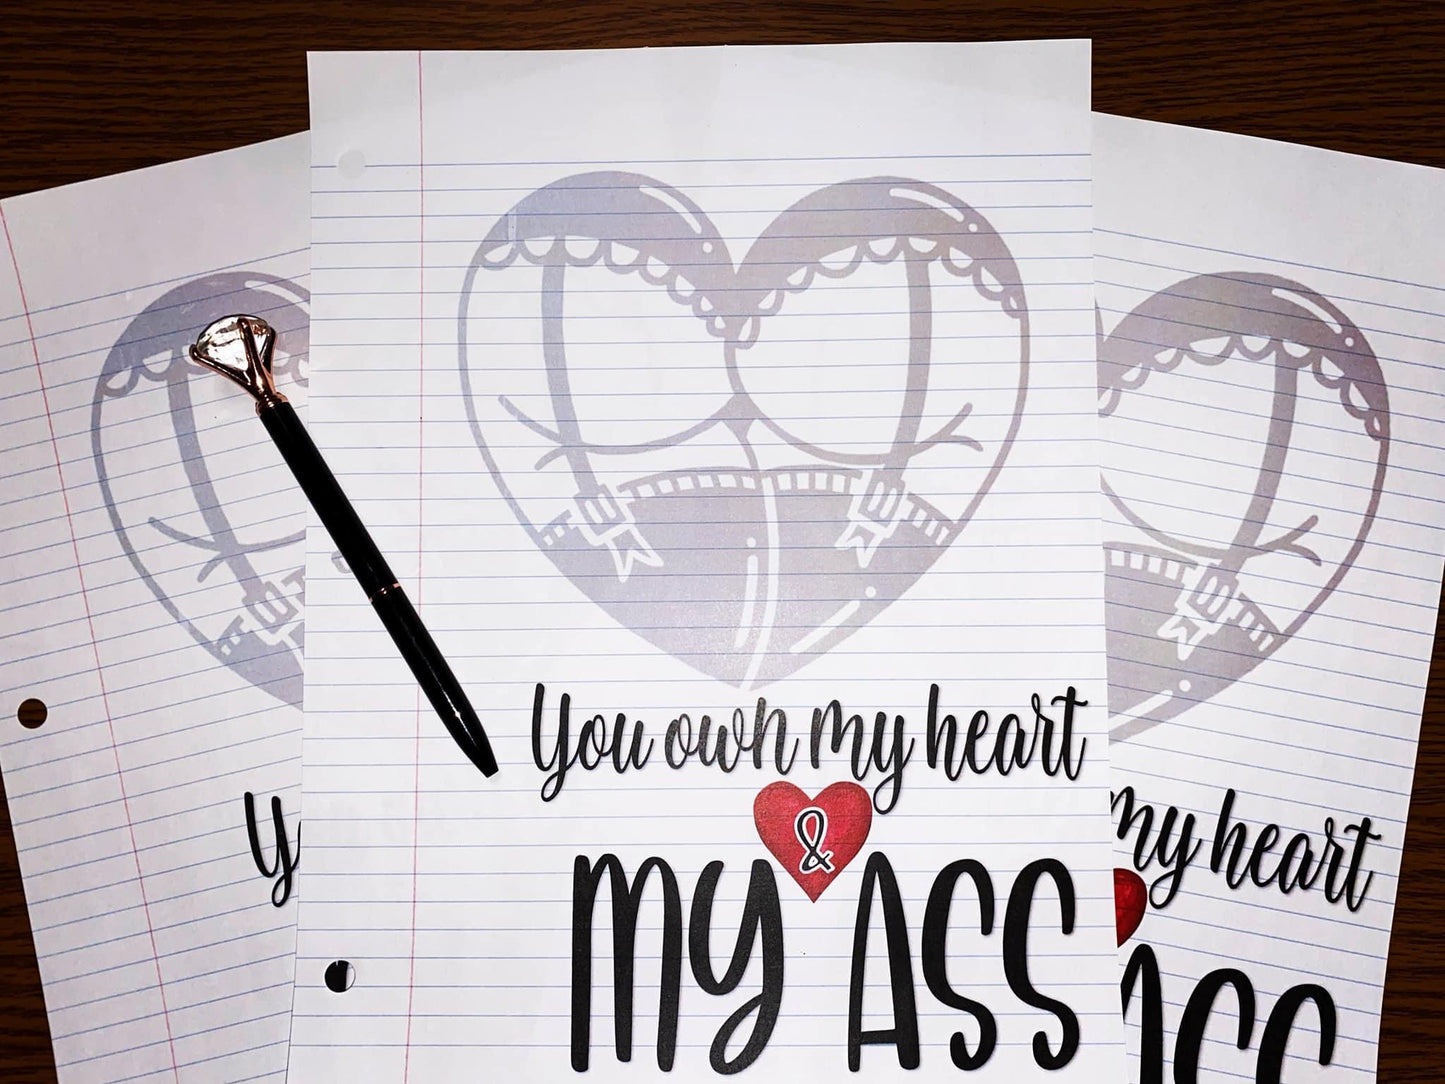 You own my heart
&
my ASS
Y
my heart
ASS